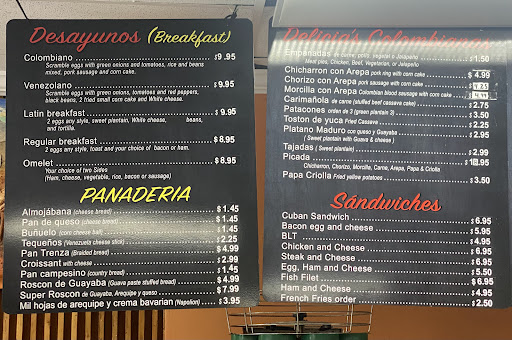 Desayunos (Breakfast)
Colombiano $9.95
Scramble eggs with green onions and tomatoes, rice and beans
mixed, pork sausage and corn cake.
Venezolano $9.95
Scramble eggs with green onions, tomatoes and red peppers,
black beans, 2 fried small corn cake and White cheese.
Latin breakfast $9.95
2 eggs any style, sweet plantain, White cheese, beans,
and tortilla.
Regular breakfast $8.95
2 eggs any style, toast and your choice of bacon or ham.
Omelet $8.95
Your choice of two Sides
(Ham, cheese, vegetable, rice, bacon or sausage)
PANADERIA
Almojábana (cheese bread) $1.45
Pan de queso (cheese bread) $1.45
Buñuelo (corn cheese ball) $1.45
Tequeños (Venezuela cheese stick) $2.25
Pan Trenza (Braided bread) $4.99
Croissant with cheese $2.99
Pan campesino (country bread) $1.45
Roscon de Guayaba (Guava paste stuffed bread) $4.99
Super Roscon de Guayaba, Arequipe y queso $7.99
Mil hojas de arequipe y crema bavarian (Napolion) $3.95
Delicias Colombianas
Empanadas de carne, pollo, vegetal o Jalapeño $1.50
Meat pies, Chicken, Beef, Vegetarian, or Jalapeño
Chicharron con Arepa pork ring with corn cake $4.99
Chorizo con Arepa pork sausage with corn cake
Morcilla con Arepa Colombian blood sausage with corn cake
Carimañola de carne (stuffed beet cassava cake) $2.75
Patacones order de 3 (green plantain 3) $3.50
Toston de yuca Fried Cassava $2.25
Platano Maduro con queso y Guayabe $2.95
( Sweet plantain with Guava & cheese )
Tajadas ( Sweet plantain) $2.99
Picada .95
Chicharron, Chorizo, Morcilla, Carne, Arepa, Papa & Criolla
Papa Criolla Fried yellow potatoes $3.50
Sándwiches
Cuban Sandwich $6.95
Bacon egg and cheese $5.95
BLT $4.95
Chicken and Cheese $6.95
Steak and Cheese $6.95
Egg, Ham and Cheese $5.50
Fish Filet $6.95
Ham and Cheese $4.95
French Fries order $2.50